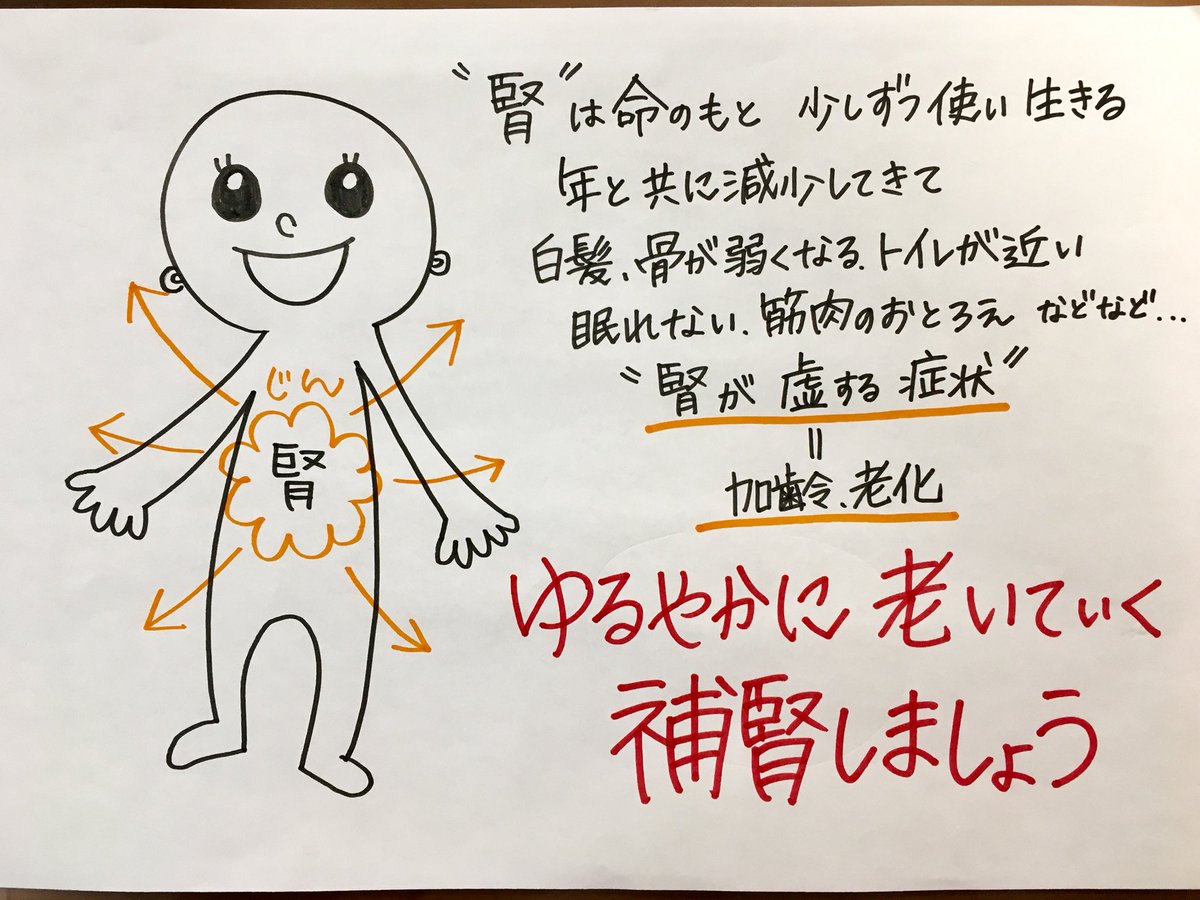 “腎”は命のもと 少しずつ使い生きる
年と共に減少してきて
白髪、骨が弱くなる、トイレが近い
眠れない、筋肉のおとろえ などなど...
“腎が虚する症状”
=
加齢、老化
ゆるやかに老いていく
補腎しましょう
じん
腎